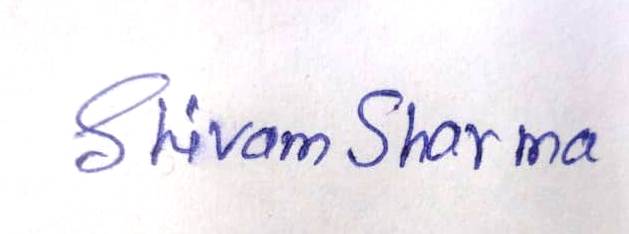 Shivam Sharma